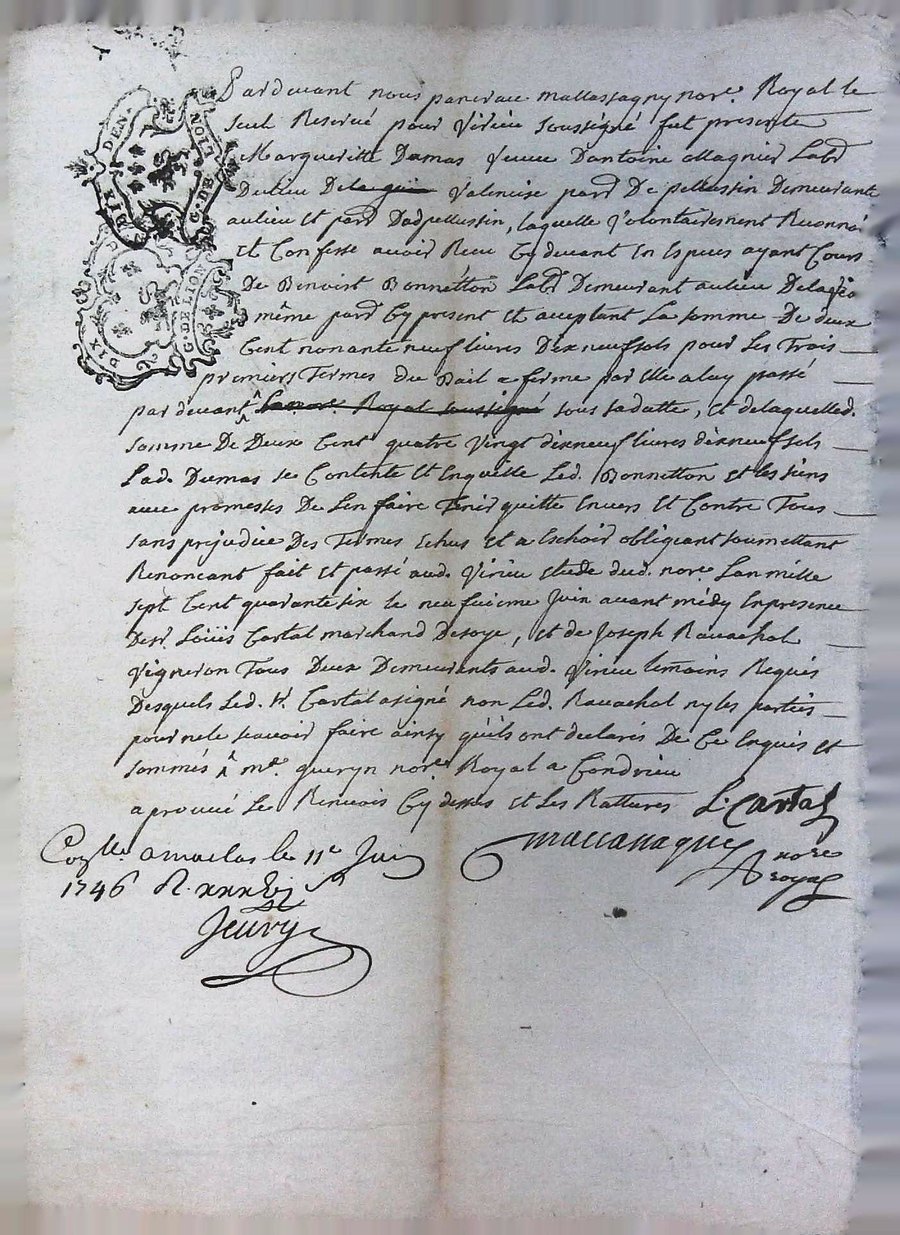 DIX DEN.
G. DE LION
DIX
G. DE LION
Pardevant nous pancrace mallassagny nore. Royal le
seul Reservé pour Virieu soussigné fut presente
Margueritte Dumas veuve Dantoine Magnier Labr
Du lieu De Valencise parr De pellussin Demeurante
au lieu et parr Dud pellussin, laquelle Volontairement Reconnoi
et Confesse avoir Receu Cydevant En Especes ayant Cours
De Benoist Bonnetton Labr Demeurant au lieu
même parr Cy present et acceptant La somme De deux
Cent nonante neuf livres Dix neuf sols pour Les Trois
premiers Termes du Bail a ferme par Elle a luy passé
pardevant Royal soussigné sous sa datte, Et de laquelle d.
somme De Deux Cent quatre Vingt dixneuf livres dixneuf sols
Lad. Dumas se Contente Et Enquitte Led. Bonnetton et les siens
avec promesses De Len faire Tenir quitte Envers Et Contre Tous
sans prejudice Des Termes Echus Et a Eschoir obligeant soumettant
Renoncant fait Et passé aud. Virieu Etude dud. nore. Lan mille
sept Cent quarante six le neufvieme Juin avant médy En presence
De sr. Loüis Cartal marchand De soye, Et de Joseph Ravachol
Vigneron Tous Deux Demeurants aud. Virieu temoins Requis
Desquels Led. sr. Cartal a signé non Led. Ravachol ny les parties
pour ne le scavoir faire ainsy quils ont declarés De Ce Enquis Et
sommés ^ me. gueryn nore. Royal a Condrieu
aprouvé Le Renvois Cy dessus Et Les Rattures L. Cartal
nore
royal
Conlle. a le 11e Juin
1746 R.